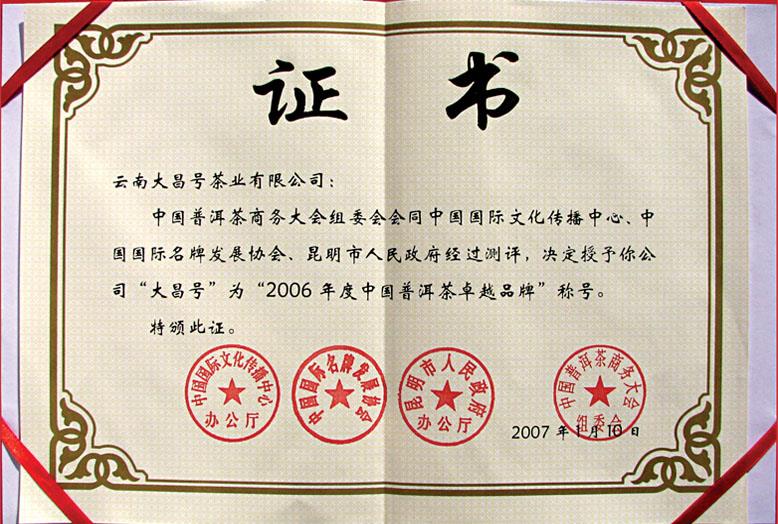 证 书
云南大昌号茶业有限公司：
中国普洱茶商务大会组委会会同中国国际文化传播中心、中
国国际名牌发展协会、昆明市人民政府经过测评，决定授予你公
司“大昌号”为“2006 年度中国普洱茶卓越品牌”称号。
特颁此证。
中国国际文化传播中心
办公厅
中国国际名牌发展协会
昆明市人民政府
办公厅
中国普洱茶商务大会
组委会
2007 年 1 月 10 日